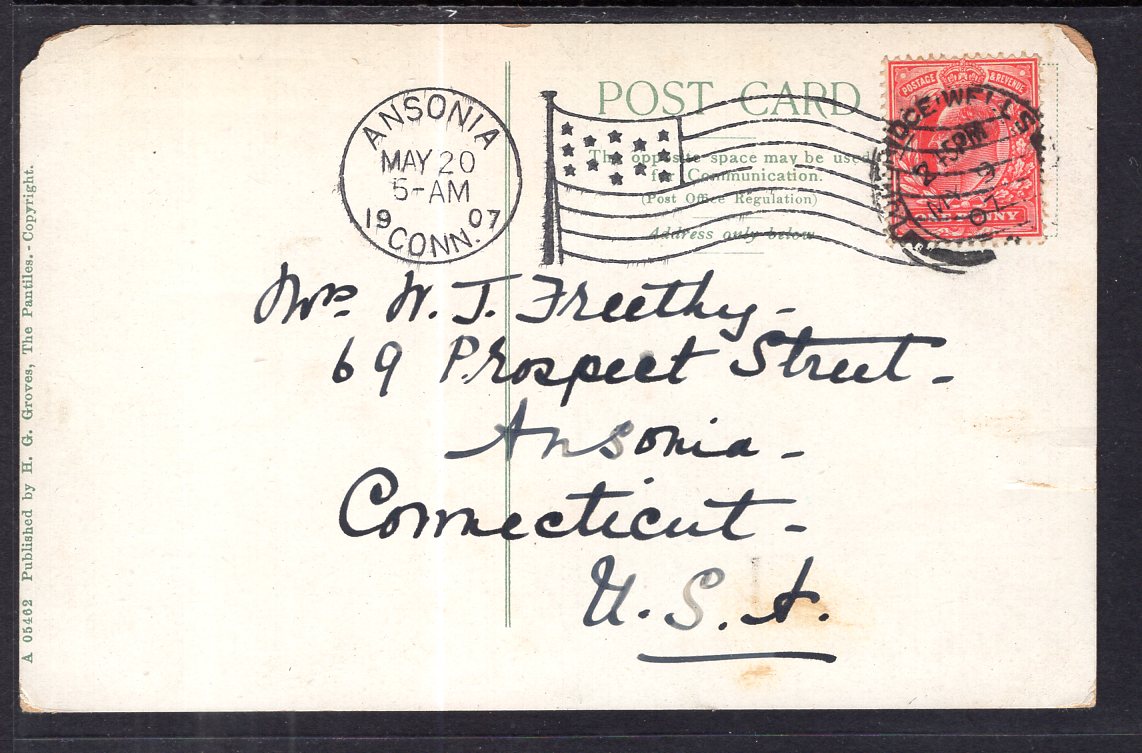 POST CARD
The opposite space may be used
for Communication.
(Post Office Regulation)
Address only below
ANSONIA
MAY 20
5-AM
1907
CONN.
POSTAGE & REVENUE
WELLS
2 45PM
MY 9
07
Mrs W. J. Freethy-
69 Prospect Street-
Ansonia-
Connecticut-
U.S.A.
A 05462 Published by H. G. Groves, The Pantiles. - Copyright.